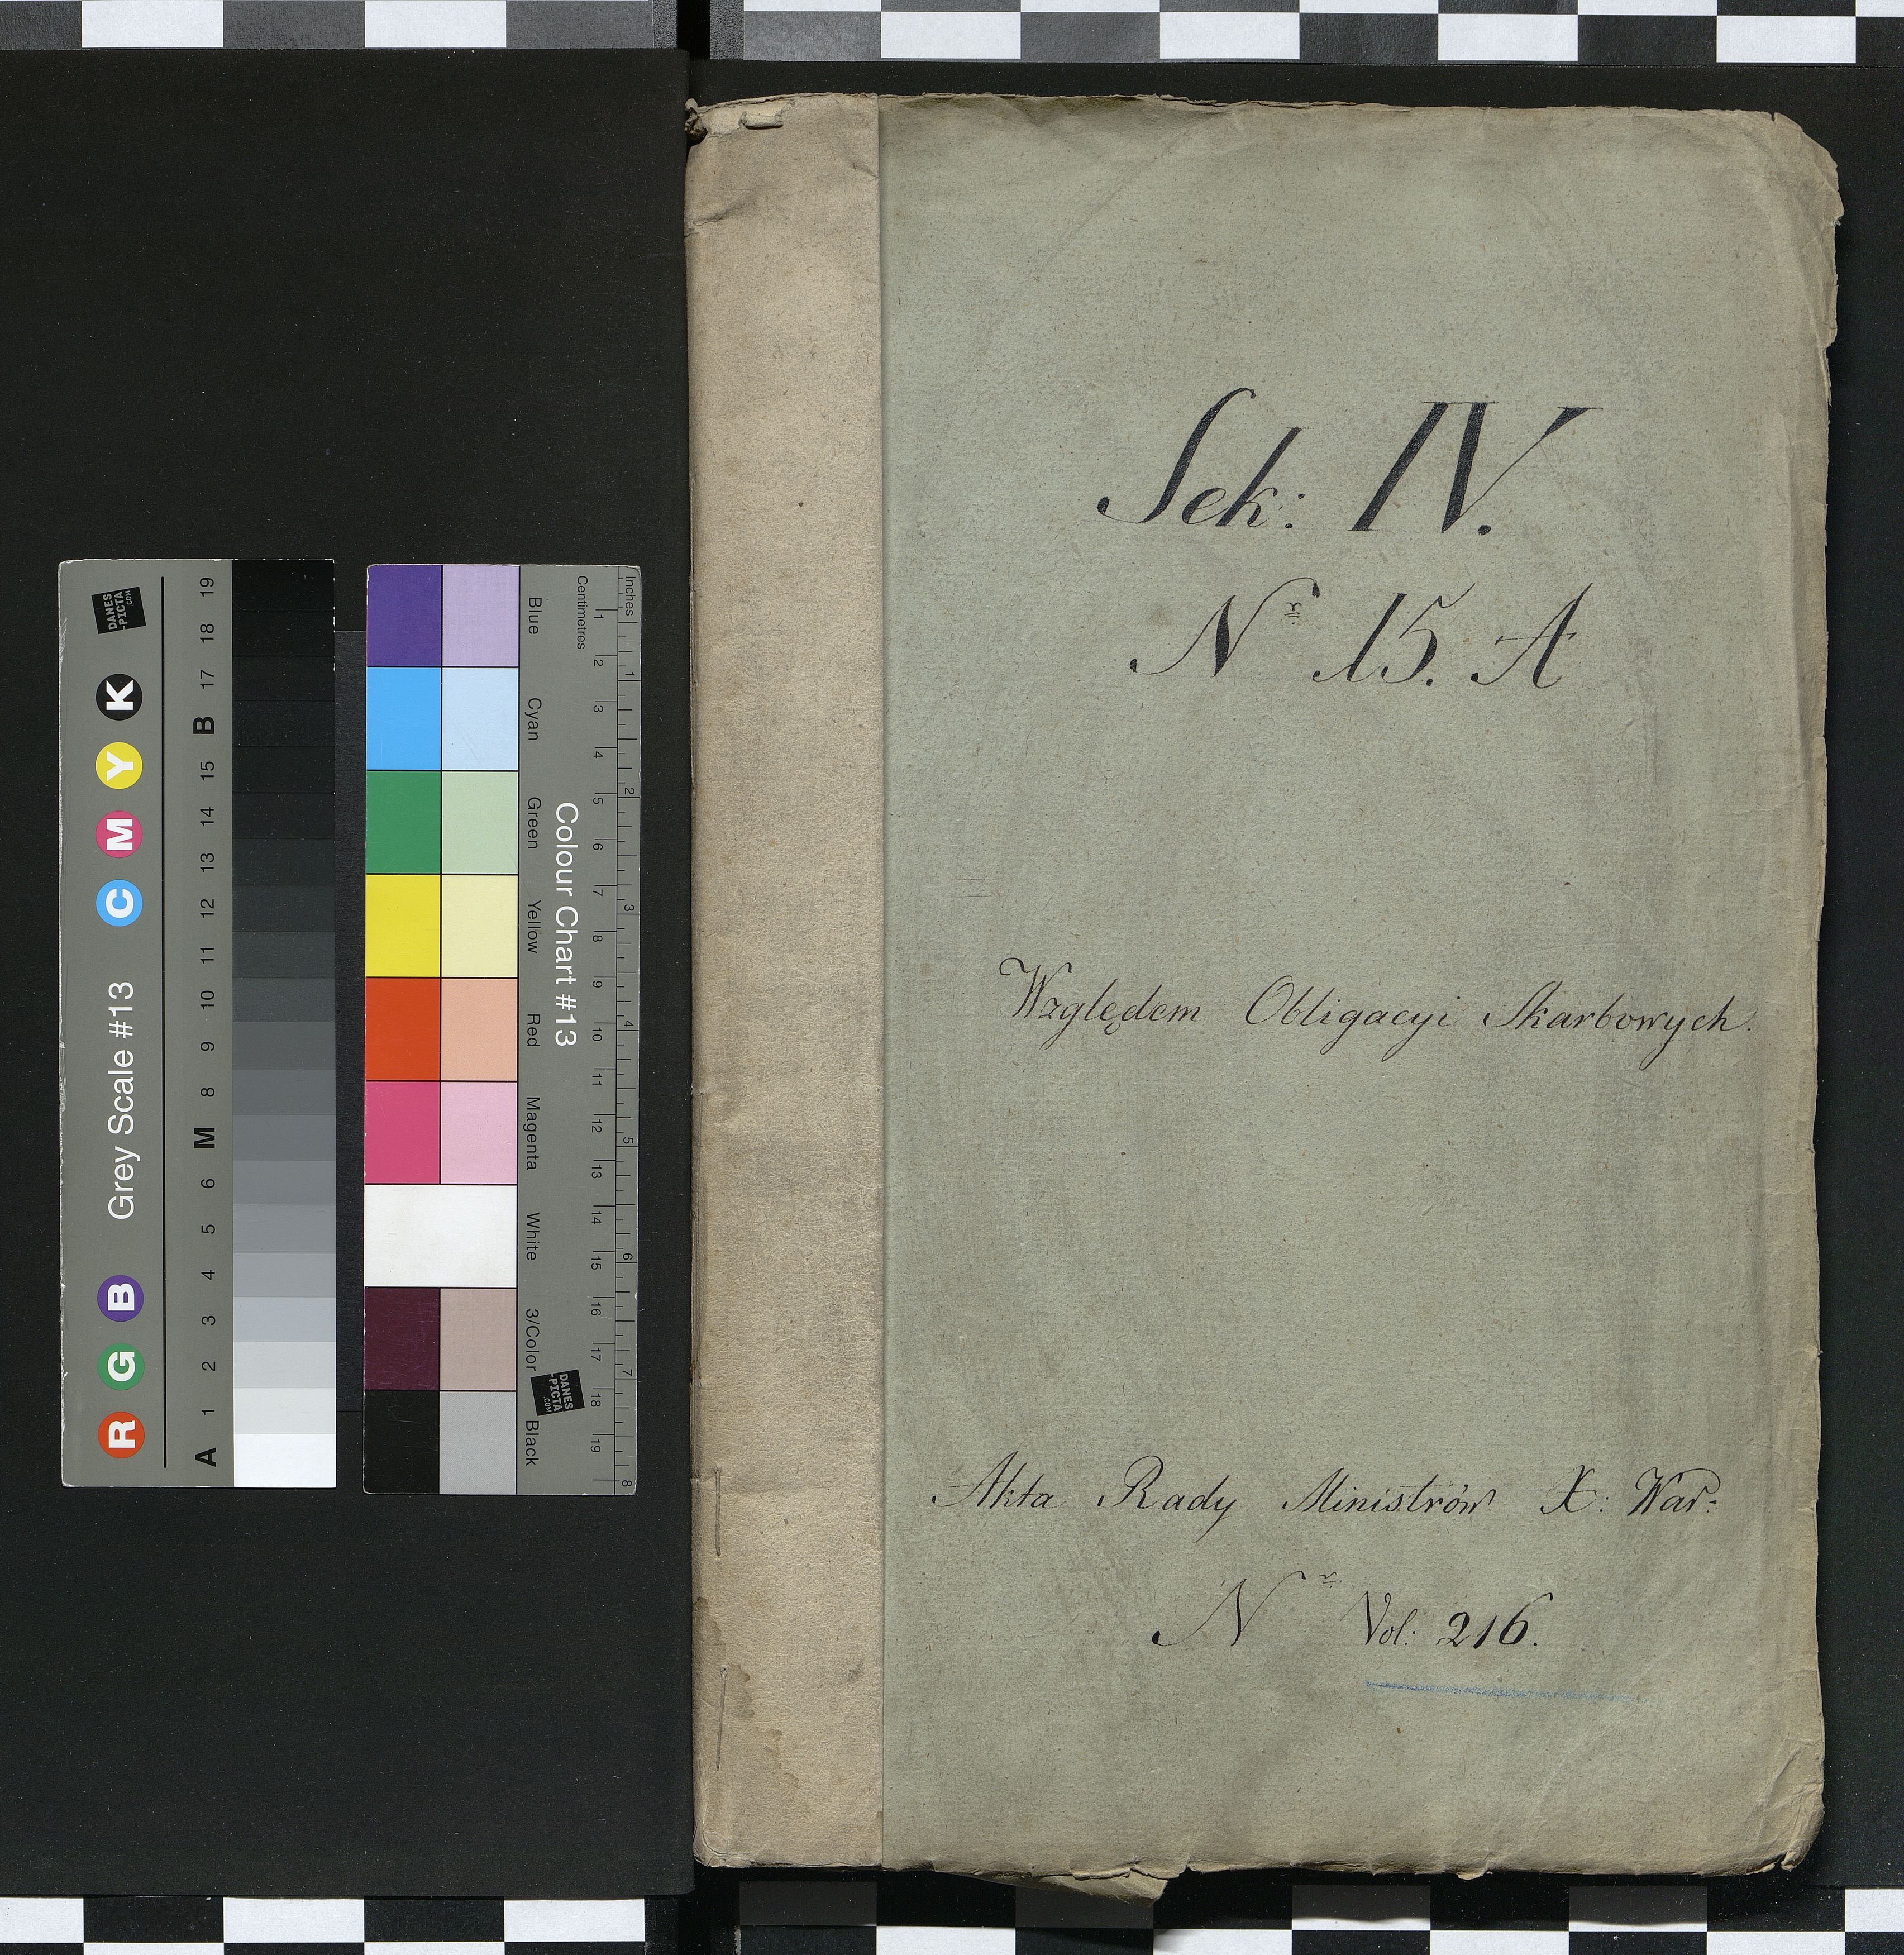 Sek: IV.
N 15. A
Względem Obligacyi Skarbowych.
Akta Rady Ministrów X: War:
N Vol: 216.
Grey Scale #13
R G B C M Y K
A 1 2 3 4 5 6 M 8 9 10 11 12 13 14 15 B 17 18 19
DANES
-PICTA
.COM
Colour Chart #13
Blue Cyan Green Yellow Red Magenta White 3/Color Black
Centimetres
1 2 3 4 5 6 7 8 9 10 11 12 13 14 15 16 17 18 19
Inches
1 2 3 4 5 6 7 8
DANES
-PICTA
.COM